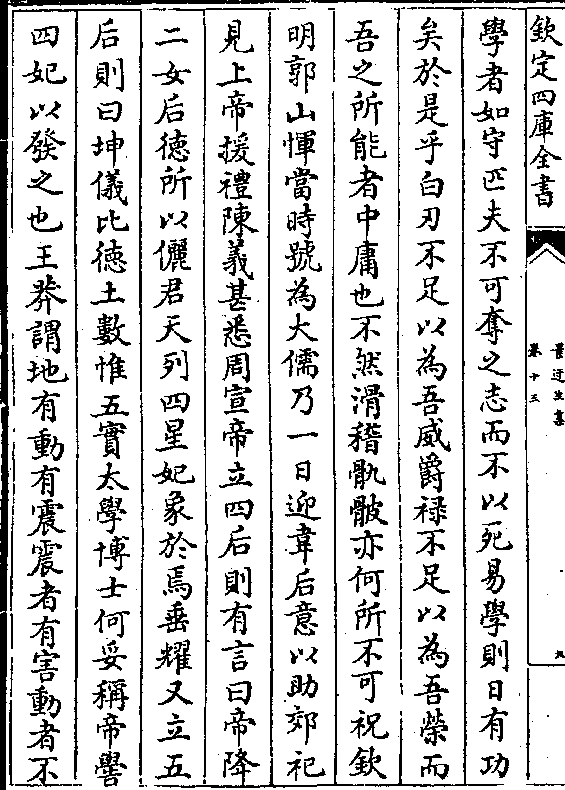 欽定四庫全書
景迂生集
卷十三
九
學者如守匹夫不可奪之志而不以死易學則日有功
矣於是乎白刃不足以為吾威爵禄不足以為吾榮而
吾之所能者中庸也不然滑稽骫骳亦何所不可祝欽
明郭山惲當時號為大儒乃一日迎韋后意以助郊祀
見上帝援禮陳義甚悉周宣帝立四后則有言曰帝降
二女后徳所以儷君天列四星妃象於焉垂耀又立五
后則曰坤儀比徳土數惟五實太學博士何妥稱帝嚳
四妃以發之也王莽謂地有動有震震者有害動者不